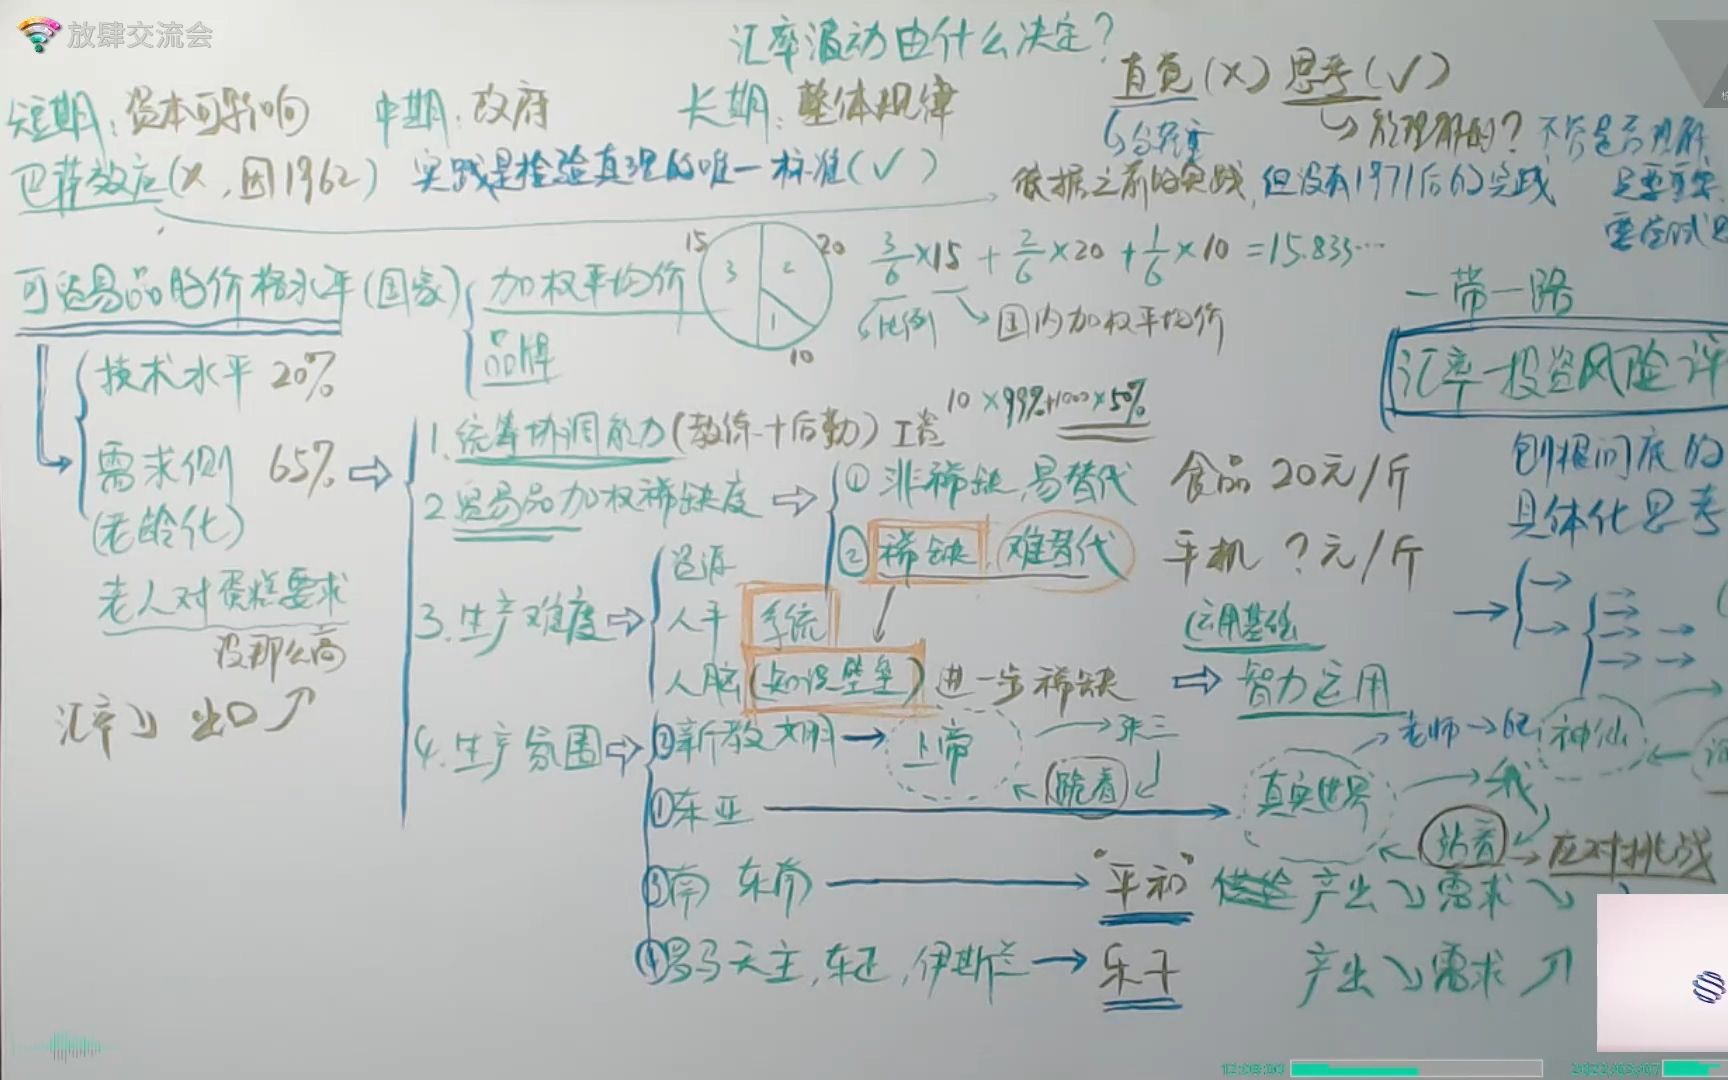 放肆交流会
汇率波动由什么决定?
直觉(×) 思考(√)
短期: 资本可影响 中期: 政府 长期: 整体规律
不管是否理解
巴萨效应(×,因1962) 实践是检验真理的唯一标准(√)
依据之前的实践,但没有1971后的实践
可贸易品的价格水平(国家)
加权平均价
品牌
15
20
10
3
2
1
3/6×15 + 2/6×20 + 1/6×10 = 15.833…
比例
国内加权平均价
一带一路
汇率-投资风险评
技术水平 20%
需求侧 65%
(老龄化)
老人对蛋糕要求
没那么高
汇率↘ 出口↗
刨根问底的
具体化思考
1.统筹协调能力(教练+后勤) 工资 10×99%+1000×50%
2.贸易品加权稀缺度
①非稀缺,易替代 食品 20元/斤
②稀缺,难替代 手机 ?元/斤
3.生产难度
资源
人手 系统
人脑(知识壁垒) 进一步稀缺
运用基础
智力运用
4.生产氛围
②新教文明 → 上帝 → 张三
跪着
老师 →
神仙
①东亚 → 真实世界 → 我
站着 → 应对挑战
③南 东南 → "平和" 产出↘ 需求↘
④罗马天主,东正,伊斯兰 → 乐子 产出↘ 需求↗